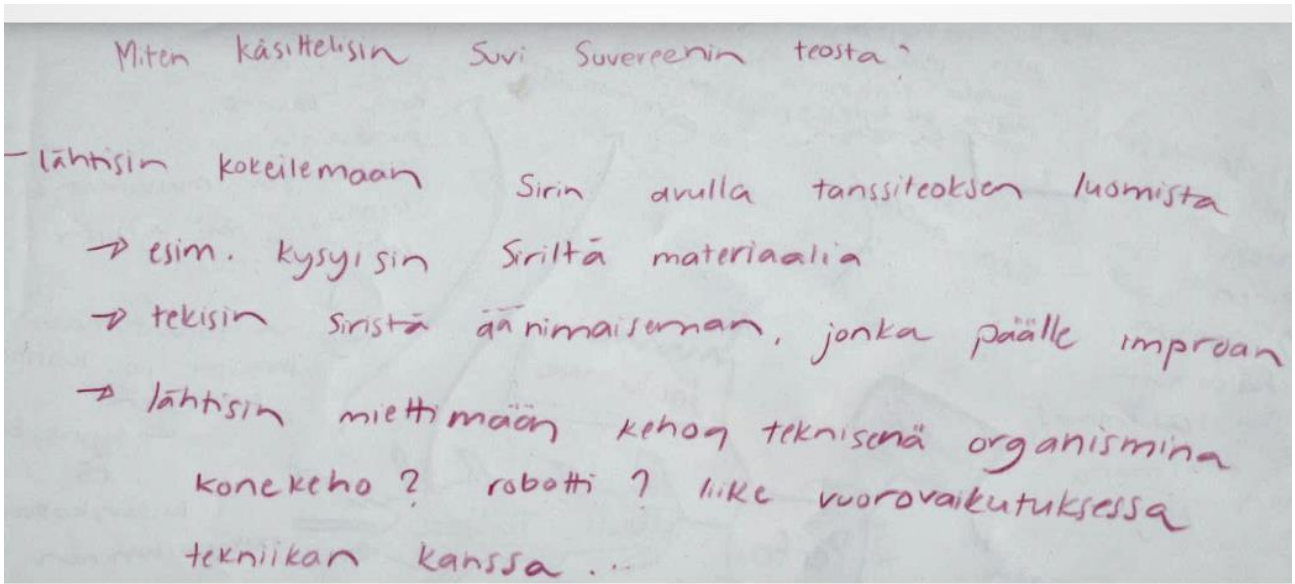 Miten käsittelisin Suvi Suvereenin teosta?
- lähtisin kokeilemaan Sirin avulla tanssiteoksen luomista
→ esim. kysyisin Siriltä materiaalia
→ tekisin Siristä äänimaiseman, jonka päälle improan
→ lähtisin miettimään kehoa teknisenä organismina
konekeho? robotti? liike vuorovaikutuksessa
tekniikan kanssa...